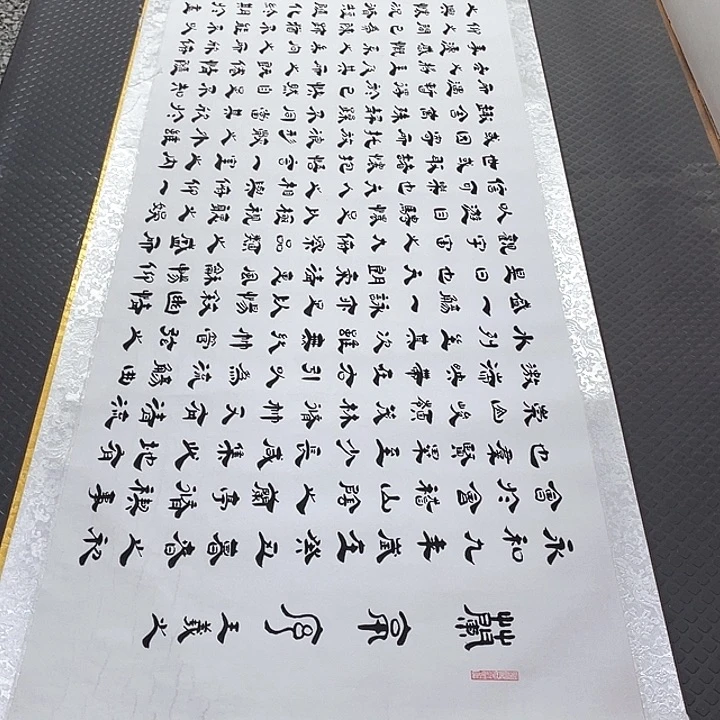 蘭亭序 王羲之
永和九年歲在癸丑暮春之初
會於會稽山陰之蘭亭脩禊事
也羣賢畢至少長咸集此地有
崇山峻領茂林脩竹又有清流
激湍映帶左右引以為流觴曲
水列坐其次雖無絲竹管弦之
盛一觴一詠亦足以暢敘幽情
是日也天朗氣清惠風和暢仰
觀宇宙之大俯察品類之盛所
以遊目騁懷足以極視聽之娛
信可樂也夫人之相與俯仰一
世或取諸懷抱悟言一室之內
或因寄所託放浪形骸之外雖
趣舍萬殊靜躁不同當其欣於
所遇暫得於己快然自足不知
老之將至及其所之既倦情隨
事遷感慨係之矣向之所欣俛
仰之間已為陳跡猶不能不以